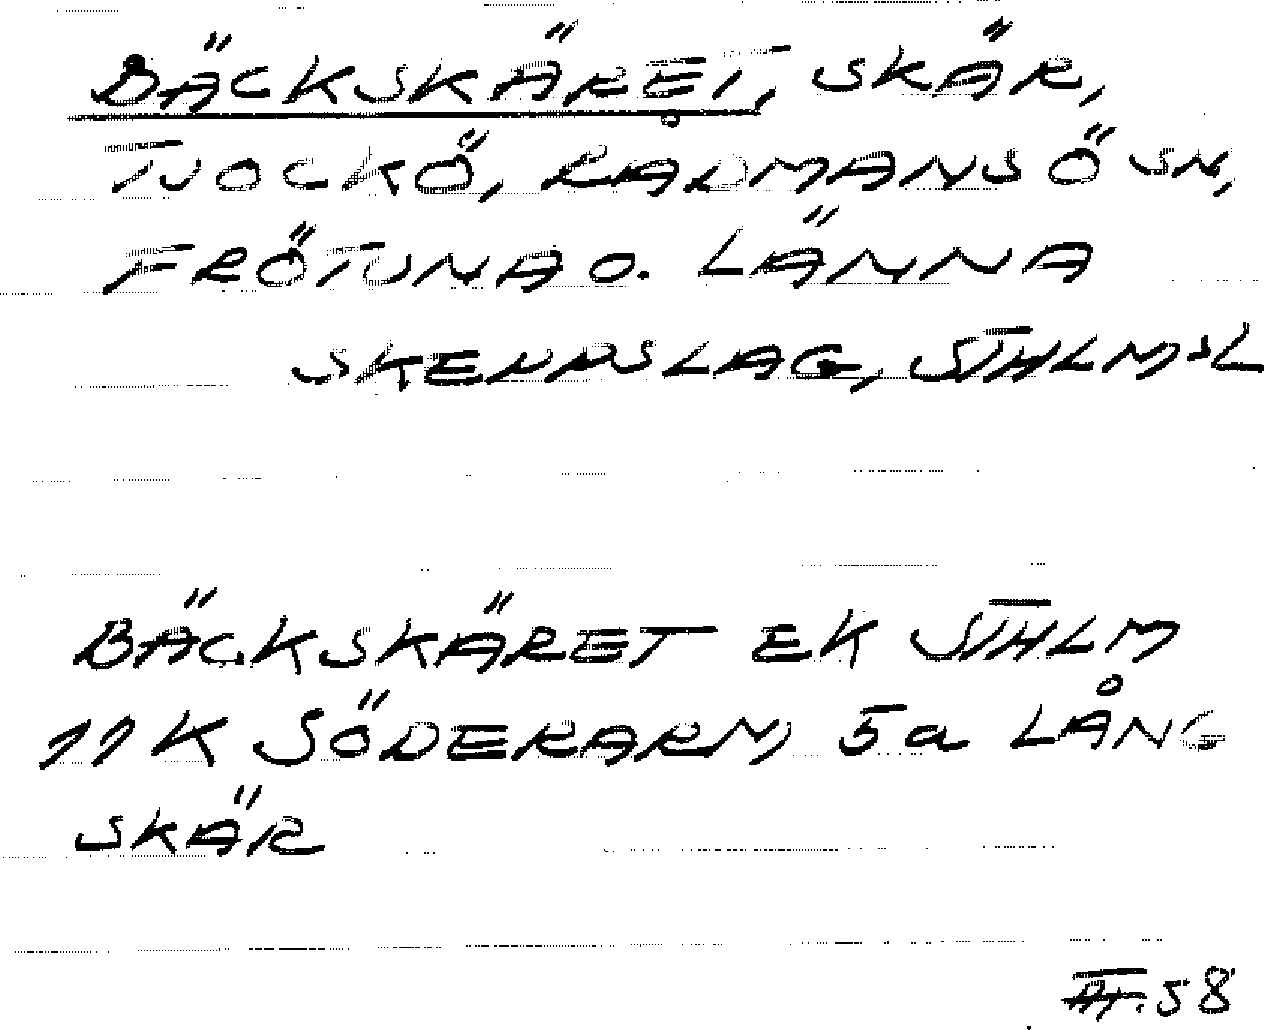 BÄCKSKÄRET, SKÄR,
TJOCKÖ, RÅDMANSÖ SN,
FRÖTUNA O. LÄNNA
SKEPPSLAG, STHLMSL
BÄCKSKÄRET EK STHLM
11K SÖDERARM, 5a LÅNG
SKÄR
58